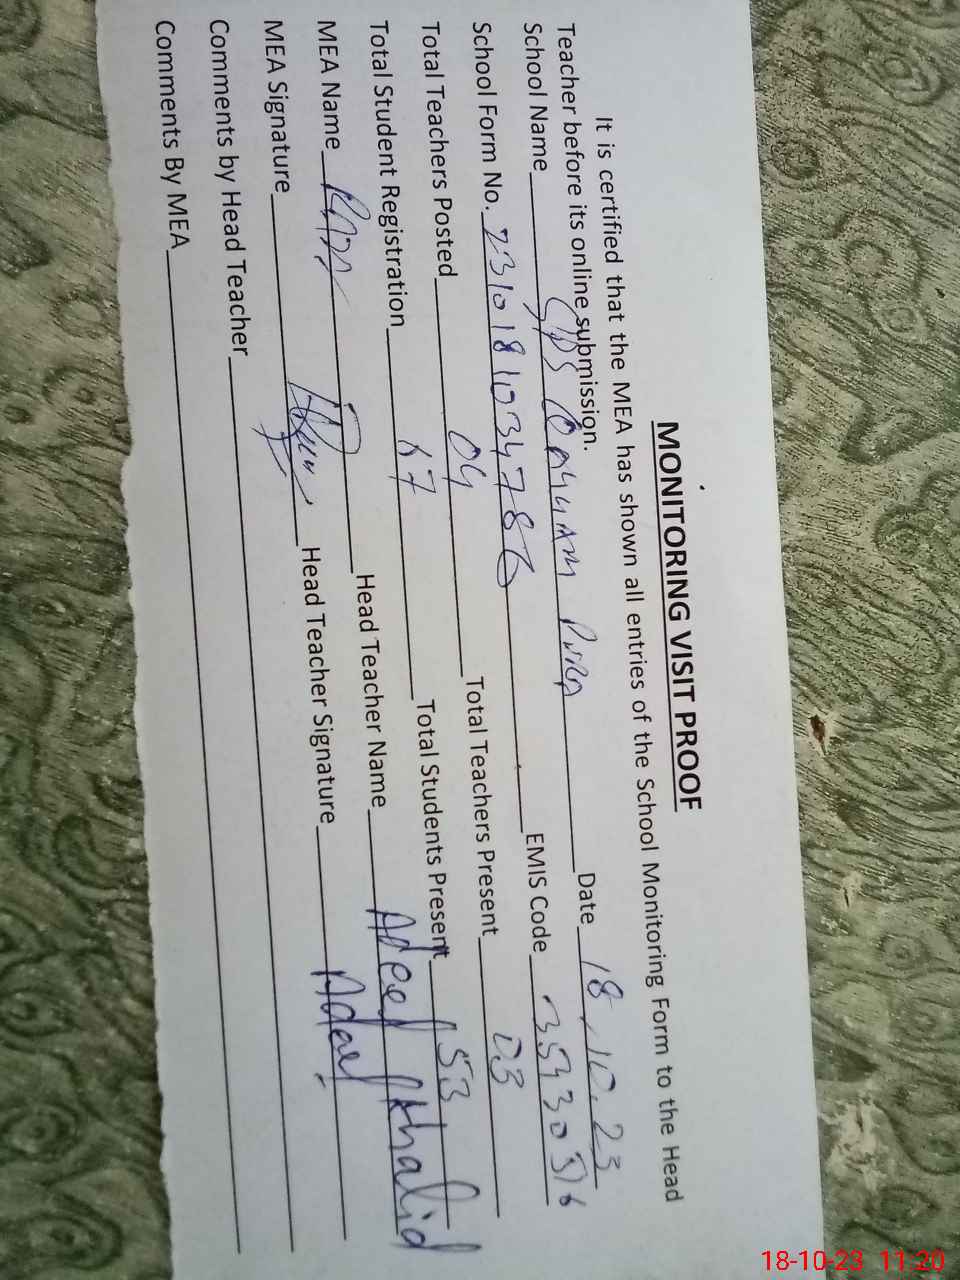 MONITORING VISIT PROOF
It is certified that the MEA has shown all entries of the School Monitoring Form to the Head
Teacher before its online submission.
School Name GPS QAYYUM PURA Date 18.10.23
School Form No. 2310181034786 EMIS Code
Total Teachers Posted 04 Total Teachers Present 03
Total Student Registration 67 Total Students Present 53
MEA Name Head Teacher Name Adeel Khalid
MEA Signature Head Teacher Signature Adeel
Comments by Head Teacher
Comments By MEA
18-10-23 11:20